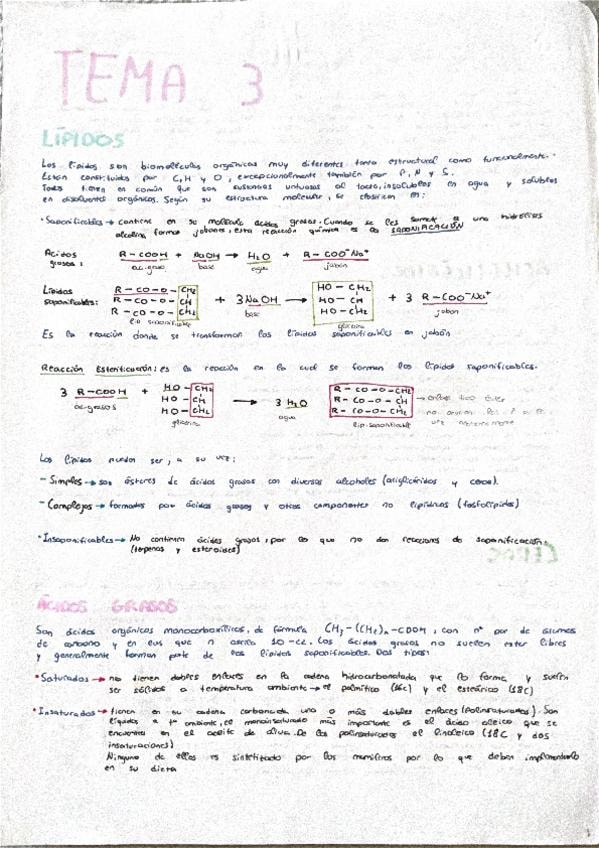 TEMA 3
LÍPIDOS
Los lípidos son biomoléculas orgánicas muy diferentes tanto estructural como funcionalmente.
Están constituidos por C, H y O, excepcionalmente también por P, N y S.
Todos tienen en común que son sustancias untuosas al tacto, insolubles en agua y solubles
en disolventes orgánicos. Según su estructura molecular, se clasifican en:
• Saponificables → contiene en su molécula ácidos grasos. Cuando se les somete a una hidrólisis
alcalina forman jabones, esta reacción química es la SAPONIFICACIÓN
Ácidos grasos: R-COOH + NaOH → H₂O + R-COO⁻Na⁺
ac. graso base agua jabón
Lípidos saponificables:
R-CO-O-CH₂ HO-CH₂
R-CO-O-CH + 3 NaOH → HO-CH + 3 R-COO⁻Na⁺
R-CO-O-CH₂ HO-CH₂
lip. saponificable base glicerina jabón
Es la reacción donde se transforman los lípidos saponificables en jabón
Reacción Esterificación: es la reacción en la cual se forman los lípidos saponificables.
HO-CH₂ R-CO-O-CH₂
3 R-COOH + HO-CH → 3 H₂O R-CO-O-CH → enlace tipo éster
HO-CH₂ R-CO-O-CH₂
ac. grasos glicerina agua lip. saponificable
Los lípidos pueden ser, a su vez:
- Simples → son ésteres de ácidos grasos con diversos alcoholes (acilglicéridos y ceras).
- Complejos → formados por ácidos grasos y otros componentes no lipídicos (fosfolípidos)
• Insaponificables → No contienen ácidos grasos, por lo que no dan reacciones de saponificación.
(terpenos y esteroides)
ÁCIDOS GRASOS
Son ácidos orgánicos monocarboxílicos, de fórmula CH₃-(CH₂)ₙ-COOH, con nº par de átomos
de carbono y en los que n oscila 10-22. Los ácidos grasos no suelen estar libres
y generalmente forman parte de los lípidos saponificables. Dos tipos:
• Saturados → no tienen dobles enlaces en la cadena hidrocarbonatada que lo forma y suelen
ser sólidos a temperatura ambiente → el palmítico (16C) y el esteárico (18C)
• Insaturados → tienen en su cadena carbonada uno o más dobles enlaces (polinsaturados). Son
líquidos a tª ambiente, el monoinsaturado más importante es el ácido oleico que se
encuentra en el aceite de oliva. De los polinsaturados el linoleico (18C y dos
insaturaciones)
Ninguno de ellos es sintetizado por los mamíferos por lo que deben
en su dieta